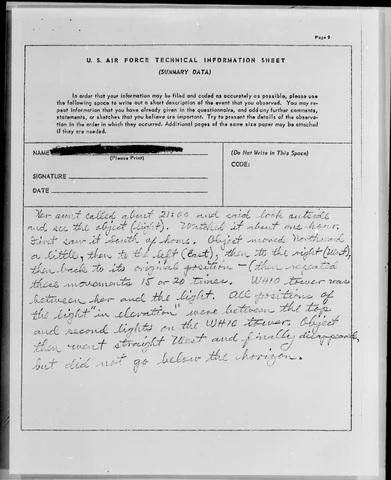 Page 9
U. S. AIR FORCE TECHNICAL INFORMATION SHEET
(SUMMARY DATA)
In order that your information may be filed and coded as accurately as possible, please use
the following space to write out a short description of the event that you observed. You may re-
peat information that you have already given in the questionnaire, and add any further comments,
statements, or sketches that you believe are important. Try to present the details of the observa-
tion in the order in which they occurred. Additional pages of the same size paper may be attached
if they are needed.
NAME
(Please Print)
SIGNATURE
DATE
(Do Not Write in This Space)
CODE:
Her aunt called about 21:00 and said look outside
and see the object (light). Watched it about one-hour.
First saw it South of home. Object moved Northward
a little, then to the left (East), then to the right (West),
then back to its original position - (then repeated
these movements 15 or 20 times. WHIO tower was
between her and the light. All positions of
the light "in elevation" were between the top
and second lights on the WHIO tower. Object
then went straight West and finally disappeared,
but did not go below the horizon.